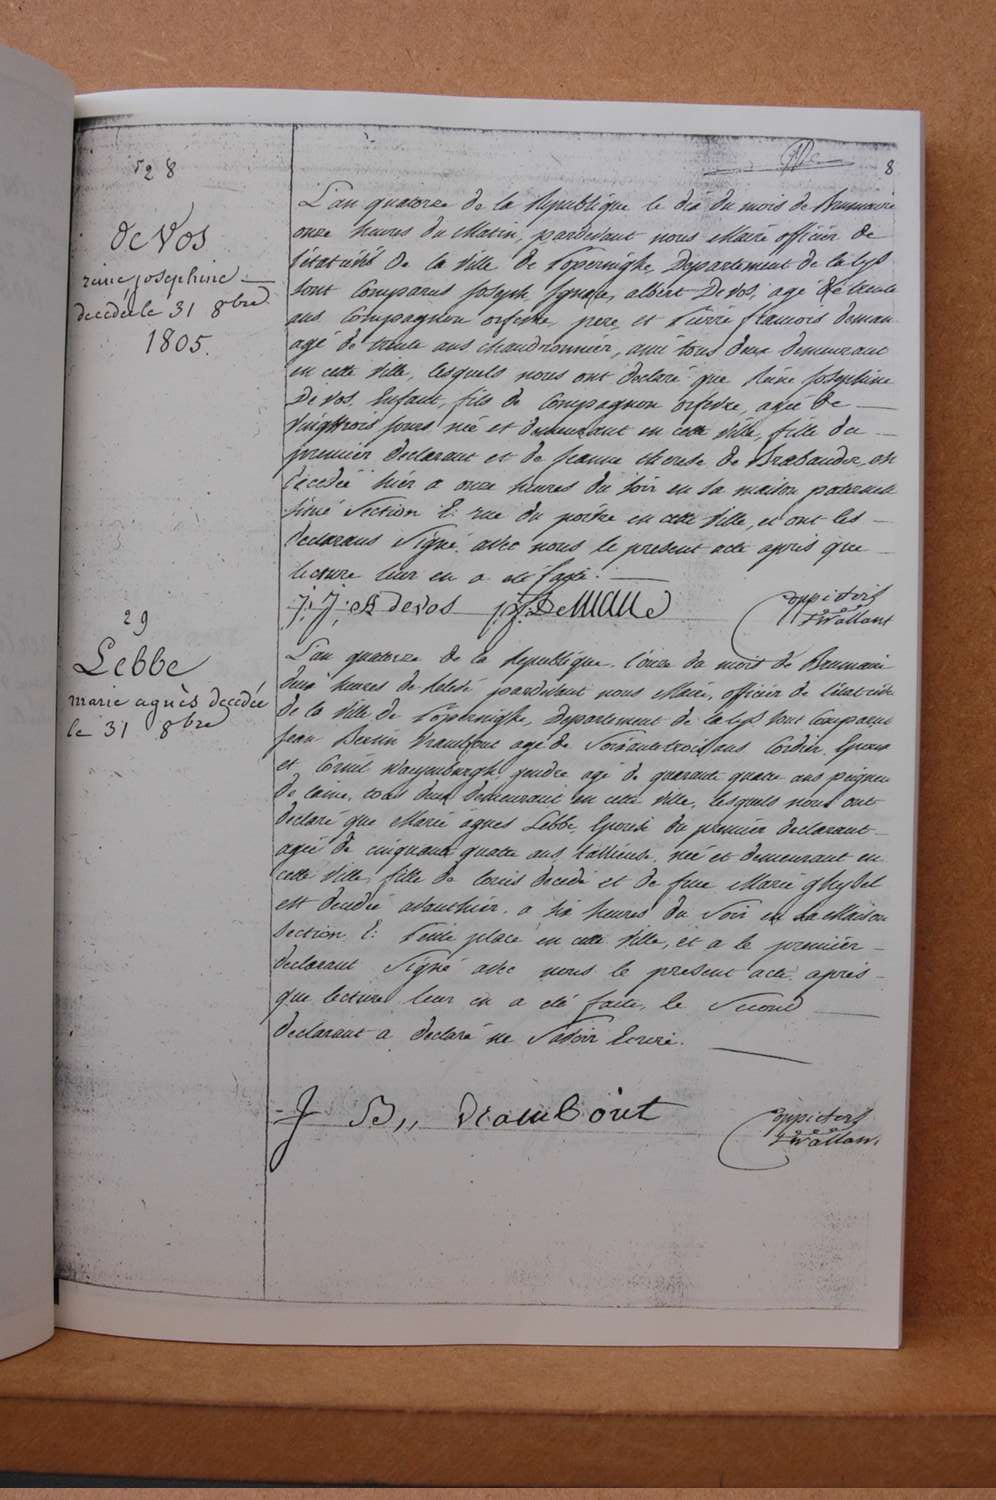 8
28
de Vos
reine josephine
decedée le 31 8bre
1805.
L'an quatorze de la Republique le dix du mois de Brumaire
onze heures du Matin, pardevant nous Maire officier de
l'état civil de la Ville de Poperinghe, Departement de la Lys
sont Comparus Joseph Ignace, albert Devos, agé de trente
ans Compagnon orfevre, pere, et Pierre francois deman
agé de trente ans chaudronnier, ami tous deux demeurant
en cette Ville, lesquels nous ont declaré que Reine Josephine
De vos, Enfant, fils de Compagnon orfevre, agée de
Vingttrois jours née et demeurant en cette Ville, fille du
premier declarant et de jeanne therese de Brabander, est
decedée hier a onze heures du soir en sa maison paternelle
situé Section E: rue du poivre en cette Ville, et ont les
declarans Signé, avec nous le present acte après que
lecture leur en a été faite.
J: J: A devos p f Deman
29
Lebbe
marie agnès decedée
le 31 8bre
L'an quatorze de la Republique, l'onze du mois de Brumaire
deux heures de relevé pardevant nous Maire, officier de l'état civil
de la Ville de Poperinghe, Departement de la Lys sont Comparus
jean Agé de Soixantetrois ans Cordier, Epoux
et Corneil gendre agé de quarante quatre ans peigneur
de laine, tous deux demeurant en cette Ville, lesquels nous ont
declaré que Marie agnes Lebbe, Epouse du premier declarant
agée de cinquante quatre ans, née et demeurant en
cette Ville, fille de Louis decedé et de feue Marie ghysel
est decedée avanthier a six heures du Soir en sa Maison
Section E: petite place en cette Ville, et a le premier
declarant Signé avec nous le present acte après
que lecture leur en a été faite, le Second
declarant a declaré ne Savoir Ecrire.
J B,, Drambout